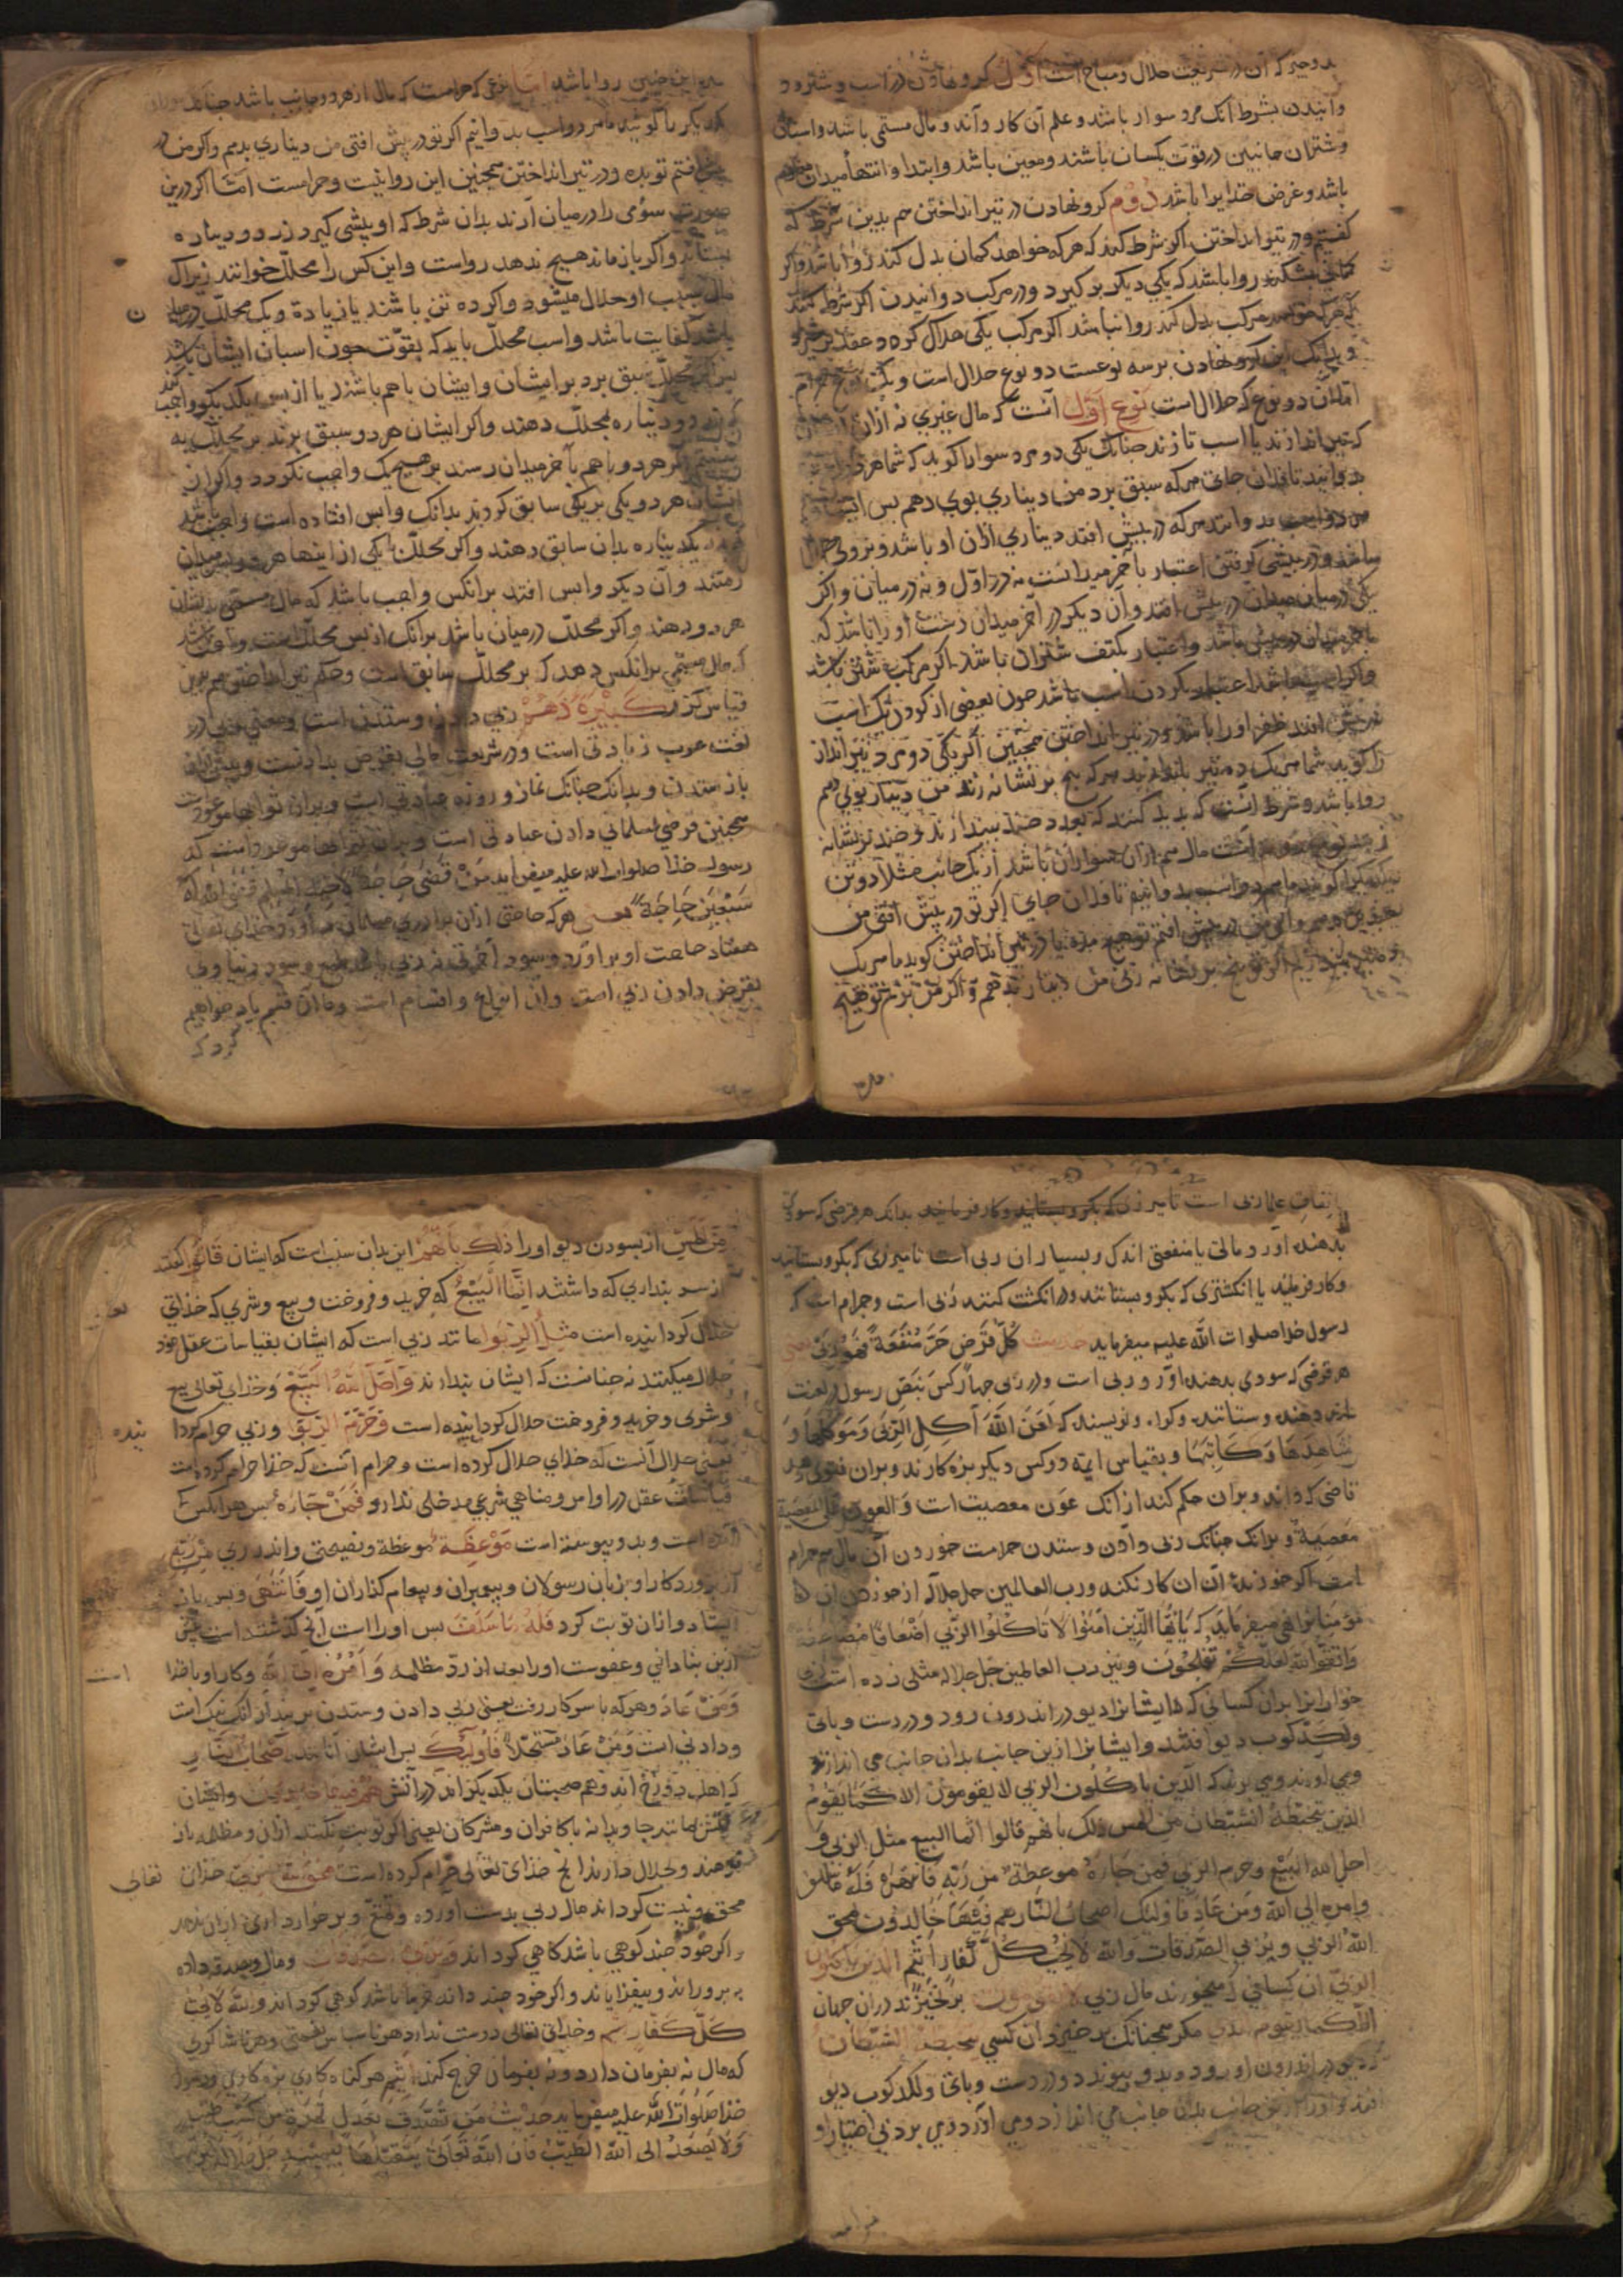 بدو چیز که آن در شریعت حلال و مباح است اول کرو نهادن در اسب و شتر و د
وانیدن بشرط آنک مرد سوار باشد و علم آن کار داند و مال مسمی باشد و اسبان
و شتران جانبین در قوت یکسان باشند و معین باشد و ابتدا و انتهاء میدان معلوم
باشد و غرض خدایرا باشد دوم کرو نهادن در تیر انداختن هم بدین شرط که
کفتیم و در تیر انداختن اکر شرط کنند که هر که خواهد کمان بدل کند روا باشد و اکر
کمانی بشکند روا باشد که یکی دیکر بر کیرد و در مرکب دوانیدن اکر شرط کنند
که هر که خواهد مرکب بدل کند روا نباشد اکر مرکب یکی هلاک کردد عقد
و بدانک این کرو نهادن بر سه نوعست دو نوع حلال است و یک نوع حرام
اما آن دو نوع که حلال است نوع اول آنست که مال غیری نه ازان
که تیر اندازند یا اسب تازند چنانک یکی دو مرد سوار را کوید که شما هر دو اسب
بدوانید تا فلان جای هر که سبق برد من دیناری بوی دهم پس ایشان
هر دو اسب بدوانند هر که در پیش افتد دیناری ازان او باشد و بر وی حلال
باشد و در پیشی کرفتن اعتبار بآخر میدانست نه در اول و نه در میان و اکر
یکی در میان میدان در پیش افتد و آن دیکر در آخر میدان
بآخر میدان در پیش باشد و اعتبار بکتف شتران باشد اکر مرکب شتر باشد
و اکر اسب باشد اعتبار بکردن اسب باشد چون بعضی از کردن
در پیش افتد ظفر او را باشد و در تیر انداختن همچنین اکر یکی دو مرد تیر انداز
را کوید شما هر یک ده تیر باندازید هر که پنج بر نشانه زند من دینار بوی دهم
روا باشد و شرط آنست که پدید کنند که بعدد چند بیندازند و چند بر نشانه
زنند نوع دوم آنست مال هم ازان سواران باشد از یک جانب مثلا دو تن
یکدیکر را کویند ما هر دو اسب بدوانیم تا فلان جای اکر تو در پیش افتی من
در پیش افتم تو هیچ مده یا در تیر انداختن کوید ما هر یک
اکر تو پنج بر نشانه زنی من دینار بدهم و اکر من بزنم تو هیچ
مده این چنین روا باشد اما نوعی که حرامست که مال از هر دو جانب باشد چنانک
یکدیکر را کویند ما هر دو اسب بدوانیم اکر تو در پیش افتی من دیناری بدهم و اکر من در
پیش افتم تو بده و در تیر انداختن همچنین این روا نیست و حرامست اما اکر درین
صورت سوّمی را در میان آرند بدان شرط که او پیشی کیرد زر دو دیناره
بستاند و اکر باز ماند هیچ ندهد رواست و این کس را محلّل خوانند زیراک
مال بسبب او حلال میشود و اکر ده تن باشند یا زیاده و یک محلّل در میان
باشد کفایت باشد و اسب محلّل باید که بقوّت چون اسبان ایشان باشد
پس اکر محلّل سبق برد بر ایشان و ایشان با هم باشند یا از پس یکدیکر واجب
دو دیناره بمحلّل دهند و اکر ایشان هر دو سبق برند بر محلّل به
اکر هر دو با هم بآخر میدان رسند بر هیچ یک واجب نکردد و اکر از
ایشان هر دو یکی بر یکی سابق کردند بدانک واپس افتاده است واجب باشد
که یکدیناره بدان سابق دهند و اکر محلّل با یکی از اینها هر دو بآخر میدان
رسند و آن دیکر واپس افتد بر آنکس واجب باشد که مال مسمّی بدیشان
هر دو دهند و اکر محلّل در میان باشد بر آنک از پس محلّلست واجب باشد
که مال مسمی بر آنکس دهد که بر محلّل سابق است و حکم تیر انداختن هم برین
قیاس کنند کبیرهٔ دهم ربی دادن و ستدن است و معنی ربی در
لغت عرب زیادتی است و در شریعت مالی بقرض بدادنست
باز ستدن و بدانک چنانک نماز و روزه عبادتی است و بران ثوابها موعودست
همچنین قرضی بمسلمانی دادن عبادتی است و بران ثوابها موعود
رسول خدا صلوات الله علیه میفرماید من قضی حاجة لاخیه المسلم قضی الله له
سبعین حاجة یعنی هر که حاجتی ازان برادری مسلمان بر آورد خدای تعالی
هفتاد حاجت او بر آورد و سود آخرتی
بقرض دادن ربی است و آن انواع و اقسام است و ما آن قسم یاد خواهیم
کرد که
باتفاق علما ربی است تا سر زنی که بکرو بستانند و کار فرمایند بدانک هر قرضی که سودی
بدهند آورد مالی یا منفعتی اندک و بسیار آن ربی است تا سر زنی که بکرو بستانند
و کار فرمایند یا انکشتری که بکرو بستانند و در انکشت کنند ربی است و حرام است که
رسول خدا صلوات الله علیه میفرماید حدیث کل قرض جر منفعة فهو ربی یعنی
هر قرضی که سودی بدهنده آورد ربی است و در ربی چهار کس بنص رسول در لعنت
اند دهنده و ستاننده و کواه و نویسنده که لعن الله آکل الربی و موکلها و
شاهدها و کاتبها و بقیاس ایمه دو کس دیکر بزه کارند و بران فتوی دهد
قاضی که داند و بران حکم کند از آنک عون معصیت است و العون علی المعصیة
معصیة و بدانک چنانک ربی دادن و ستدن حرامست خوردن آن مال هم حرام
است اکر خورنده آن کار نکند و رب العالمین جل جلاله از خوردن آن
مؤمنانرا نهی میفرماید که یا ایها الذین امنوا لا تاکلوا الربی اضعافا مضاعفة
واتقوا الله لعلکم تفلحون و نیز رب العالمین جل جلاله مثلی زده است
خواران را بدان کسانی که ایشانرا دیو در اندرون رود و در دست و پای
و لکدکوب دیو افتند و ایشانرا ازین جانب بدان جانب می اندازند
و می آورند و می برند که الذین یاکلون الربی لا یقومون الا کما یقوم
الذی یتخبطه الشیطان من المس ذلک بانهم قالوا انما البیع مثل الربی و
احل الله البیع و حرم الربی فمن جاءه موعظة من ربه فانتهی فله ما سلف
و امره الی الله و من عاد فاولئک اصحاب النار هم فیها خالدون یمحق
الله الربی و یربی الصدقات والله لا یحب کل کفار اثیم الذین یاکلون
الربی آن کسانی که میخورند مال ربی لا یقومون بر نخیزند دران جهان
الا کما یقوم الذی مکر همچنانک بر خیزد آن کسی یتخبطه الشیطان
که دیو در اندرون او رود و بدو پیوندد و در دست و پای و لکدکوب دیو
افتد و او را ازین جانب بدان جانب می اندازد و می آورد و می برد بی اختیار او
من المس از بسودن دیو او را ذلک بانهم این بدان سبب است که ایشان قالوا کفتند
از سر پنداری که داشتند انما البیع که خرید و فروخت و بیع و شری که خدای
حلال کردانیده است مثل الربوا مانند ربی است که ایشان بقیاسات عقل خود
حلال میکنند نه چنانست که ایشان پندارند و احل الله البیع و خدای تعالی بیع
و شری و خرید و فروخت حلال کردانیده است و حرم الربوا و ربی حرام کردا
نیده
یعنی حلال آنست که خدای حلال کرده است و حرام آنست که خدا حرام کرده است
قیاسات عقل در اوامر و مناهی شرعی مدخلی ندارد فمن جاءه پس هر آنکس که
آمده است و بدو پیوسته است موعظة موعظة و نصیحتی و اندرزی من ربه
از پروردکار او بزبان رسولان و پیمبران و پیغام کذاران او فانتهی و پس باز
ایستاد و ازان توبت کرد فله ما سلف پس او راست آنچ کذشته است یعنی
ازین بنادانی و عفوست او را بدون از ردّ مظلمه و امره الی الله و کار او با خدا
است
و من عاد و هر که با سر کار رفت یعنی ربی دادن و ستدن بر پندار آنک نیک است
و دادنی است و من عاد مستحلا فاولئک پس ایشان آنانند اصحاب النار
که اهل دوزخ اند و هم صحبتان یکدیکر اند در آتش هم فیها خالدون و ایشان
در آتش مانند جاویدانه با کافران و مشرکان یعنی اکر توبت نکنند ازان و مظلمه باز
ندهند و حلال دارند آنچ خدای تعالی حرام کرده است یمحق الله الربی خدای تعالی
محق و نیست کرداند مال ربی بدست آورده و تمتع و برخورداری ازان ندهد
و اکر خود چند کوهی باشد کاهی کرداند و یربی الصدقات و مال صدقه داده
بپروراند و بیفزایاند و اکر خود چند دانه خرما باشد کوهی کرداند والله لا یحب
کل کفار اثیم و خدای تعالی دوست ندارد هر ناسپاس نعمتی و هر ناشاکری
که مال نه بفرمان دارد و نه بفرمان خرج کند اثیم هر کناه کاری بزه کاری و رسول
خدا صلوات الله علیه میفرماید حدیث من تصدق بعدل تمرة من کسب طیب
ولا یصعد الی الله الا الطیب فان الله تعالی یتقبلها بیمینه